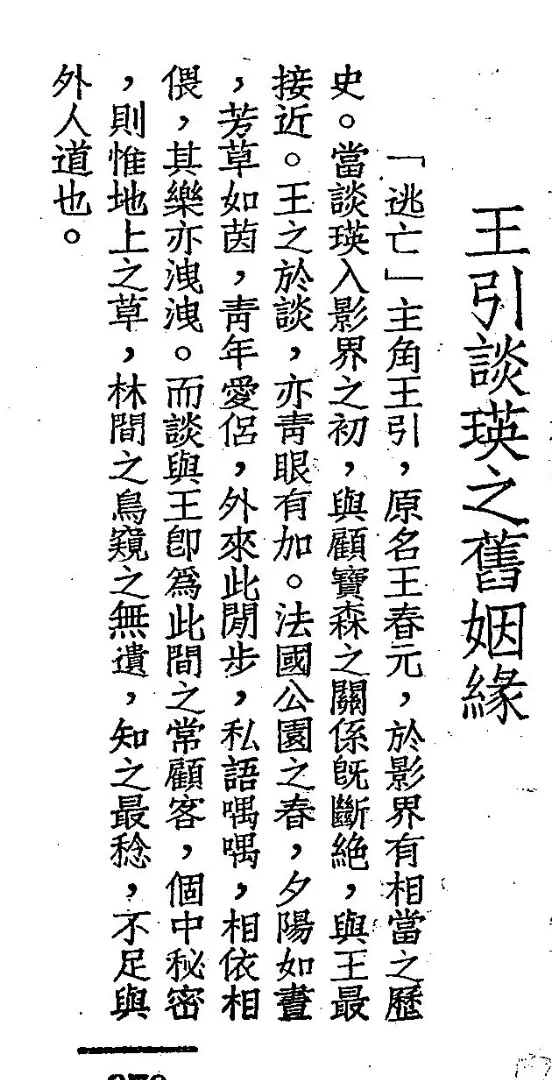 王引談瑛之舊姻緣
「逃亡」主角王引，原名王春元，於影界有相當之歷
史。當談瑛入影界之初，與顧寶森之關係既斷絕，與王最
接近。王之於談，亦靑眼有加。法國公園之春，夕陽如畫
，芳草如茵，靑年愛侶，外來此閒步，私語喁喁，相依相
偎，其樂亦洩洩。而談與王卽爲此間之常顧客，個中秘密
，則惟地上之草，林間之鳥窺之無遺，知之最稔，不足與
外人道也。